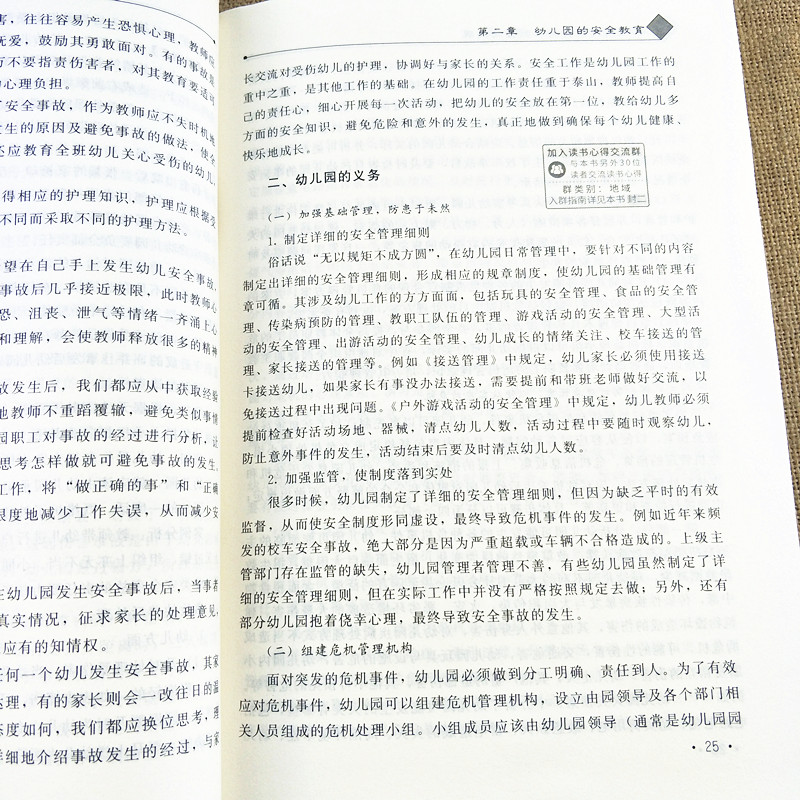 害，往往容易产生恐惧心理、教师应
抚爱，鼓励其勇敢面对。有的事故是
万不要指责伤害者，对其教育要适可
心理负担。
安全事故，作为教师应不失时机地
发生的原因及避免事故的做法，使全
还应教育全班幼儿关心受伤的幼儿，
得相应的护理知识，护理应根据受
不同而采取不同的护理方法。
望在自己手上发生幼儿安全事故，
事故后几乎接近极限，此时教师心
恐、沮丧、泄气等情绪一齐涌上心
和理解，会使教师释放很多的精神
故发生后，我们都应从中获取经验
他教师不重蹈覆辙，避免类似事情
园职工对事故的经过进行分析，让
思考怎样做就可避免事故的发生。
工作，将“做正确的事”和“正确
限度地减少工作失误，从而减少安
在幼儿园发生安全事故后，当事都
真实情况，征求家长的处理意见，
应有的知情权。
任何一个幼儿发生安全事故，其家
达理，有的家长则会一改往日的温
态度如何，我们都应换位思考，理
详细地介绍事故发生的经过，与家
第二章 幼儿园的安全教育
长交流对受伤幼儿的护理，协调好与家长的关系。安全工作是幼儿园工作的
重中之重，是其他工作的基础。在幼儿园的工作责任重于泰山，教师提高自
己的责任心，细心开展每一次活动，把幼儿的安全放在第一位，教给幼儿多
方面的安全知识，避免危险和意外的发生，真正地做到确保每个幼儿健康、
快乐地成长。
加入读书心得交流群
与本书另外30位
读者交流读书心得
群类别：地域
入群指南详见本书封二
二、幼儿园的义务
（一）加强基础管理，防患于未然
1. 制定详细的安全管理细则
俗话说“无以规矩不成方圆”，在幼儿园日常管理中，要针对不同的内容
制定出详细的安全管理细则，形成相应的规章制度，使幼儿园的基础管理有
章可循。其涉及幼儿工作的方方面面，包括玩具的安全管理、食品的安全管
理、传染病预防的管理、教职工队伍的管理、游戏活动的安全管理、大型活
动的安全管理、出游活动的安全管理、幼儿成长的情绪关注、校车接送的管
理、家长接送的管理等。例如《接送管理》中规定，幼儿家长必须使用接送
卡接送幼儿，如果家长有事没办法接送，需要提前和带班老师做好交流，以
免接送过程中出现问题。《户外游戏活动的安全管理》中规定，幼儿教师必须
提前检查好活动场地、器械，清点幼儿人数，活动过程中要随时观察幼儿，
防止意外事件的发生，活动结束后要及时清点幼儿人数。
2. 加强监管，使制度落到实处
很多时候，幼儿园制定了详细的安全管理细则，但因为缺乏平时的有效
监督，从而使安全制度形同虚设，最终导致危机事件的发生。例如近年来频
发的校车安全事故，绝大部分是因为严重超载或车辆不合格造成的。上级主
管部门存在监管的缺失，幼儿园管理者管理不善，有些幼儿园虽然制定了详
细的安全管理细则，但在实际工作中并没有严格按照规定去做；另外，还有
部分幼儿园抱着侥幸心理，最终导致安全事故的发生。
（二）组建危机管理机构
面对突发的危机事件，幼儿园必须做到分工明确、责任到人。为了有效
应对危机事件，幼儿园可以组建危机管理机构，设立由园领导及各个部门相
关人员组成的危机处理小组。小组成员应该由幼儿园领导（通常是幼儿园园
·25·